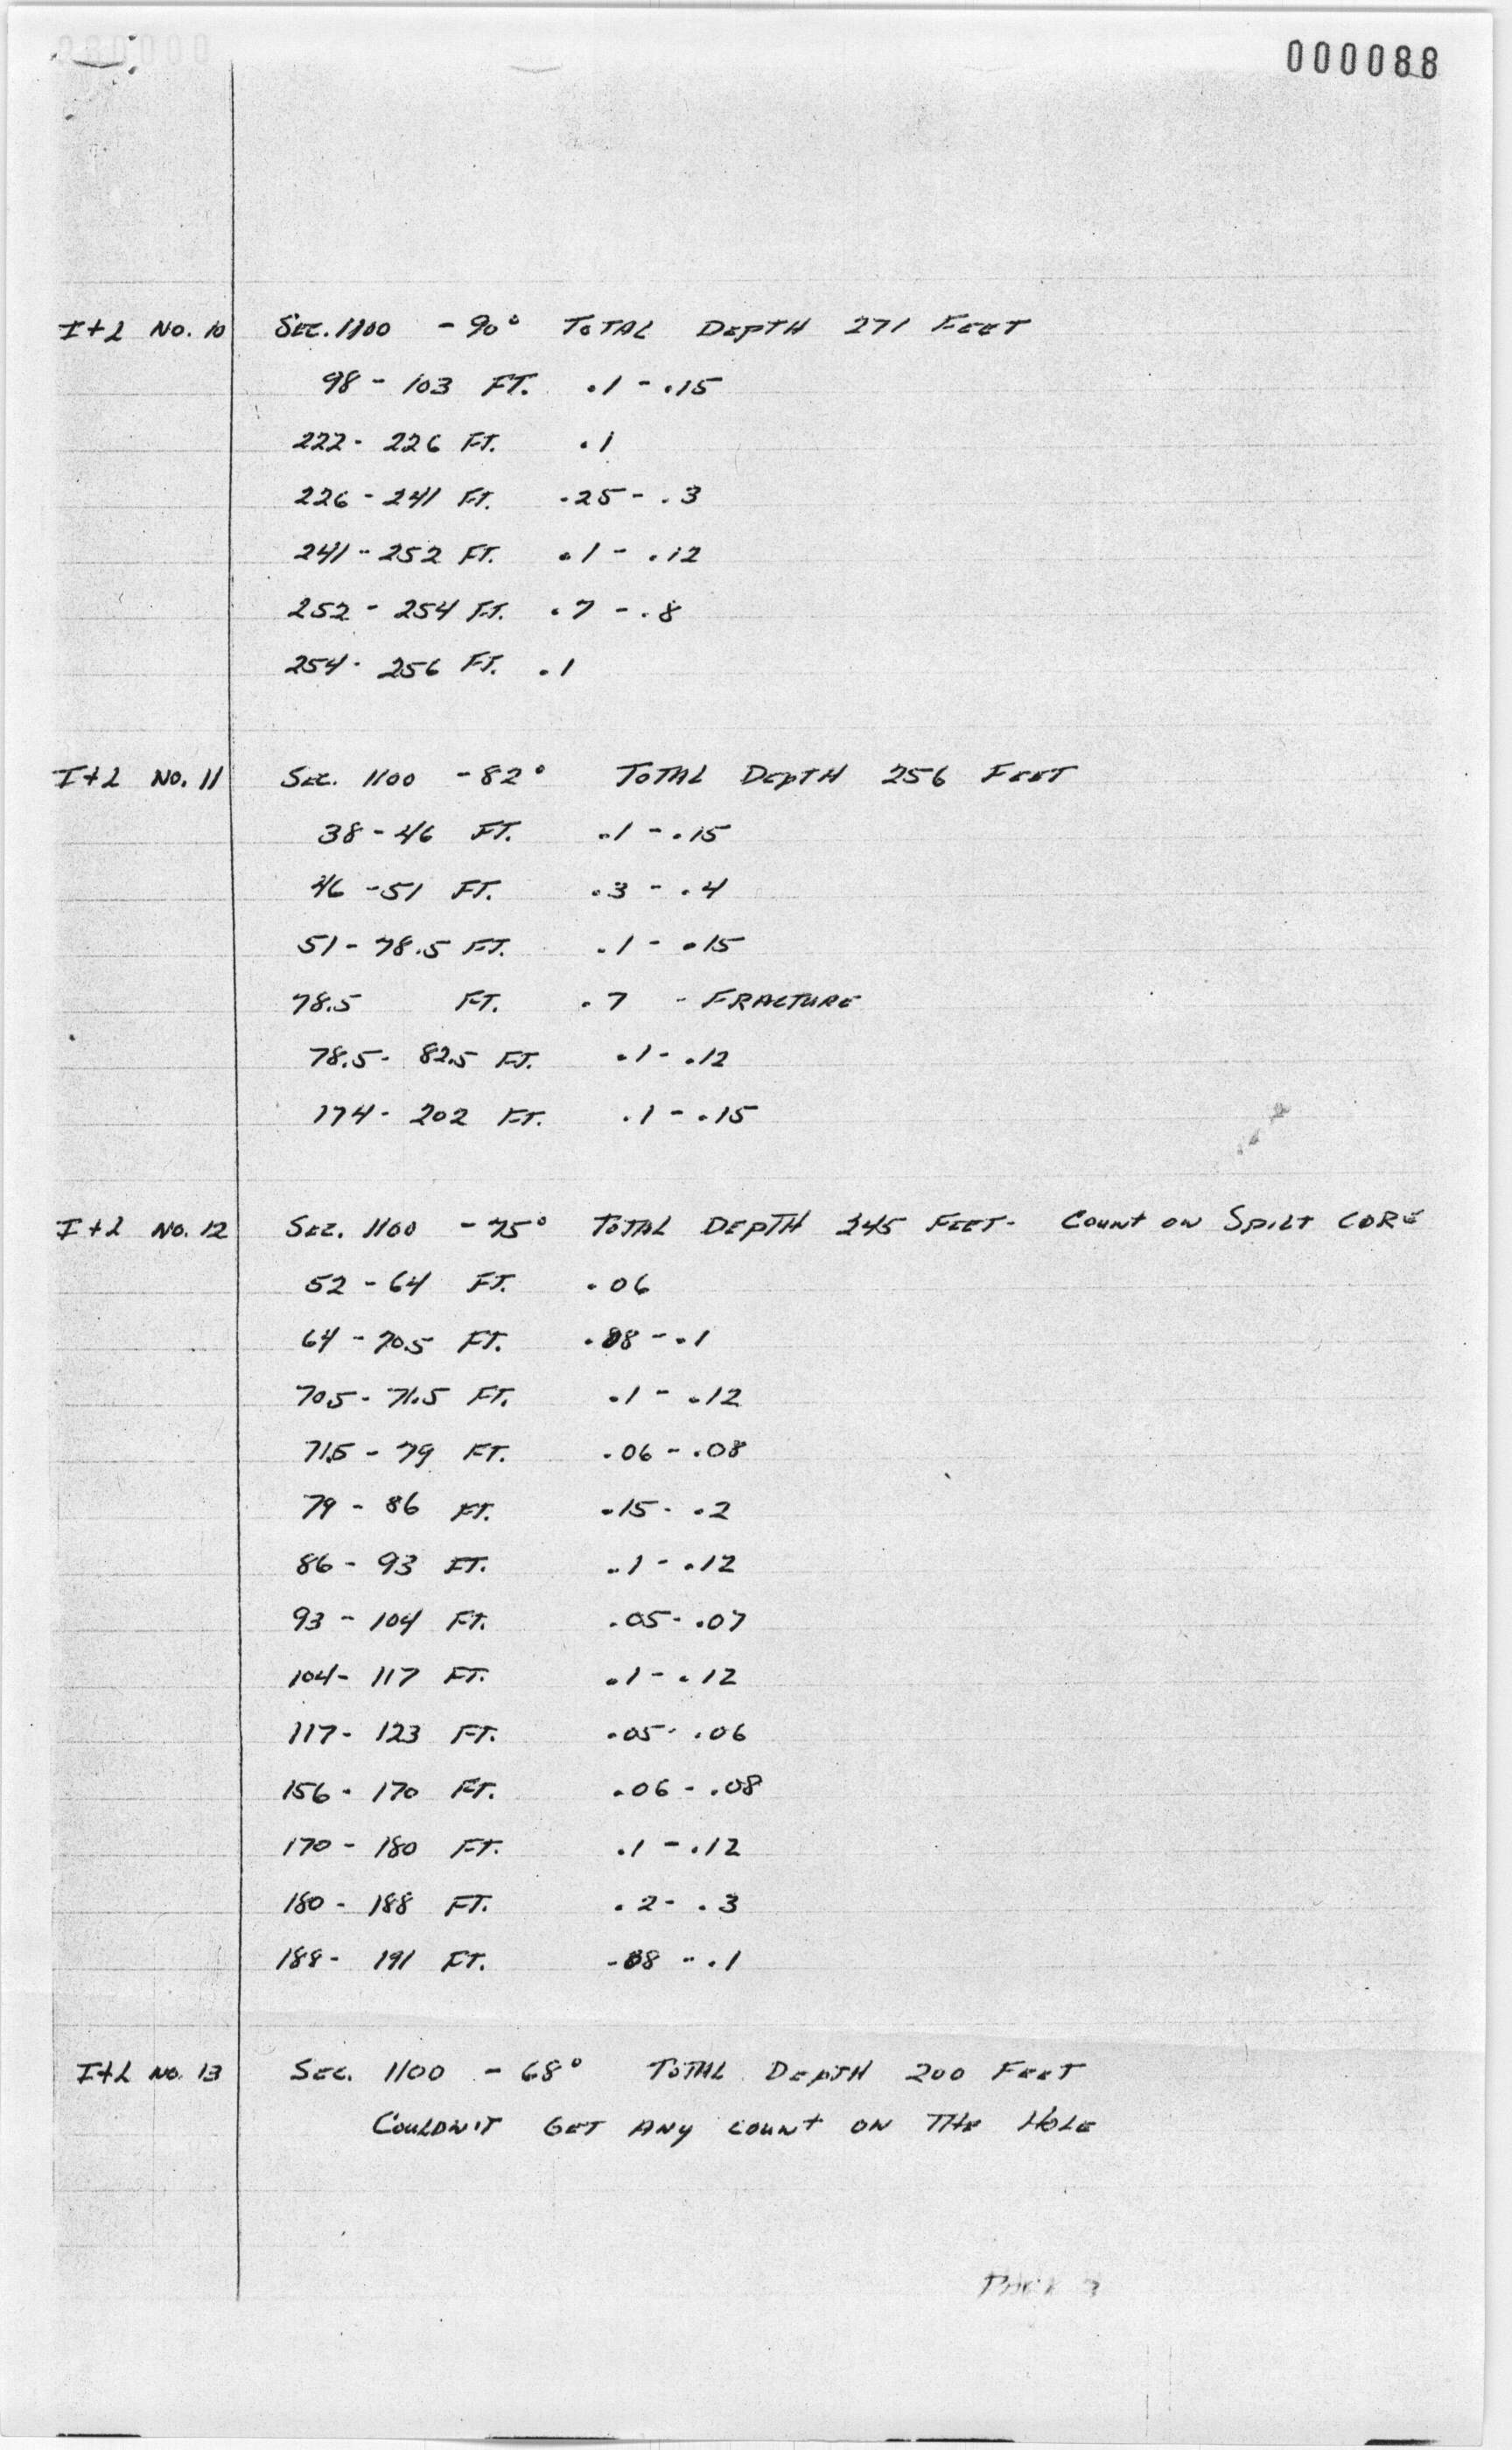 000088
I+L No. 10 Sec. 1100 -90° Total Depth 271 Feet
98 - 103 FT. .1 - .15
222 - 226 FT. .1
226 - 241 FT. .25 - .3
241 - 252 FT. .1 - .12
252 - 254 FT. .7 - .8
254 - 256 FT. .1
I+L No. 11 Sec. 1100 -82° Total Depth 256 Feet
38 - 46 FT. .1 - .15
46 - 51 FT. .3 - .4
51 - 78.5 FT. .1 - .15
78.5 FT. .7 - Fracture
78.5 - 82.5 FT. .1 - .12
174 - 202 FT. .1 - .15
I+L No. 12 Sec. 1100 -75° Total Depth 245 Feet - Count on Spilt Core
52 - 64 FT. .06
64 - 70.5 FT. .08 - .1
70.5 - 71.5 FT. .1 - .12
71.5 - 79 FT. .06 - .08
79 - 86 FT. .15 - .2
86 - 93 FT. .1 - .12
93 - 104 FT. .05 - .07
104 - 117 FT. .1 - .12
117 - 123 FT. .05 - .06
156 - 170 FT. .06 - .08
170 - 180 FT. .1 - .12
180 - 188 FT. .2 - .3
188 - 191 FT. .08 - .1
I+L No. 13 Sec. 1100 - 68° Total Depth 200 Feet
Couldn't Get Any Count on The Hole